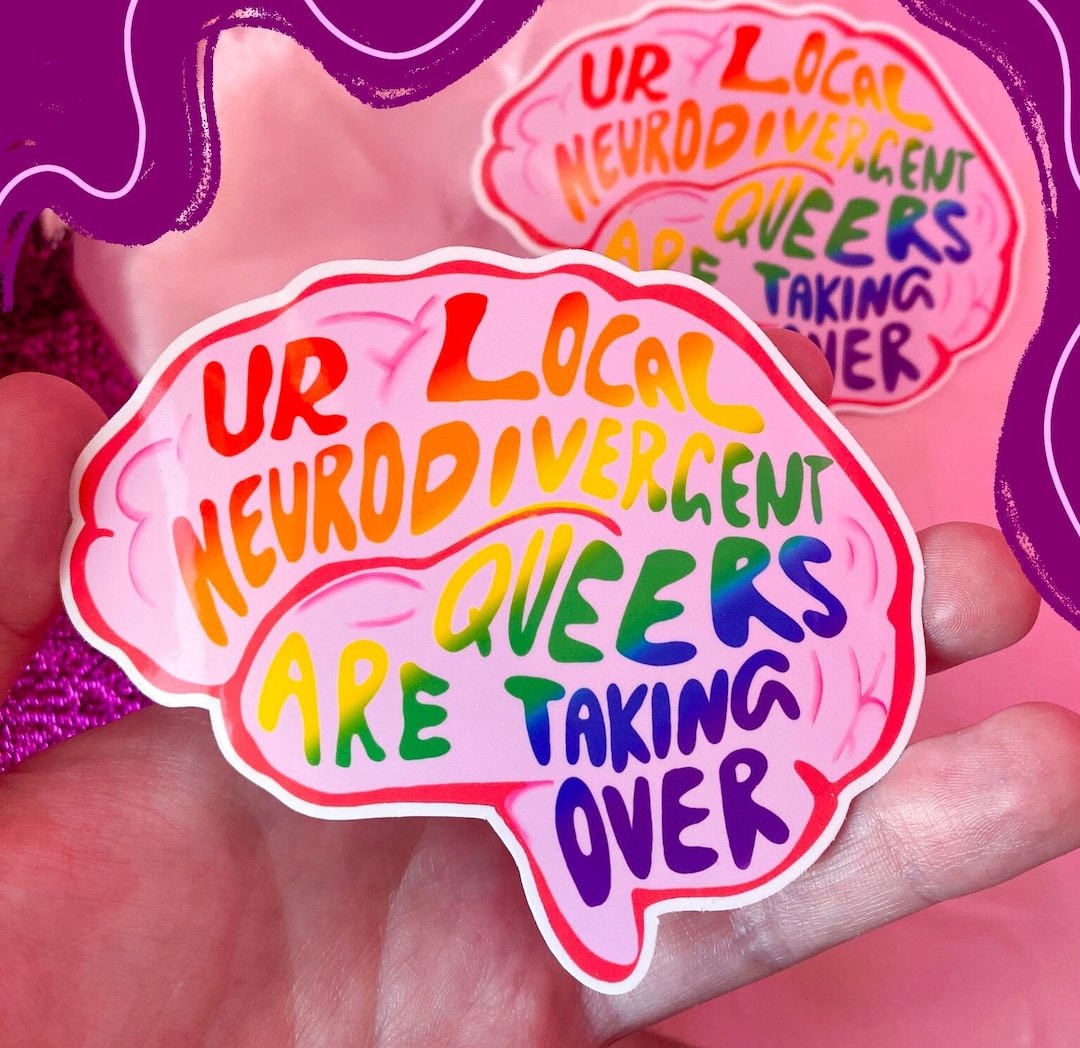 UR LOCAL
NEURODIVERGENT
QUEERS
ARE TAKING
OVER
UR LOCAL
NEURODIVERGENT
QUEERS
ARE TAKING
OVER